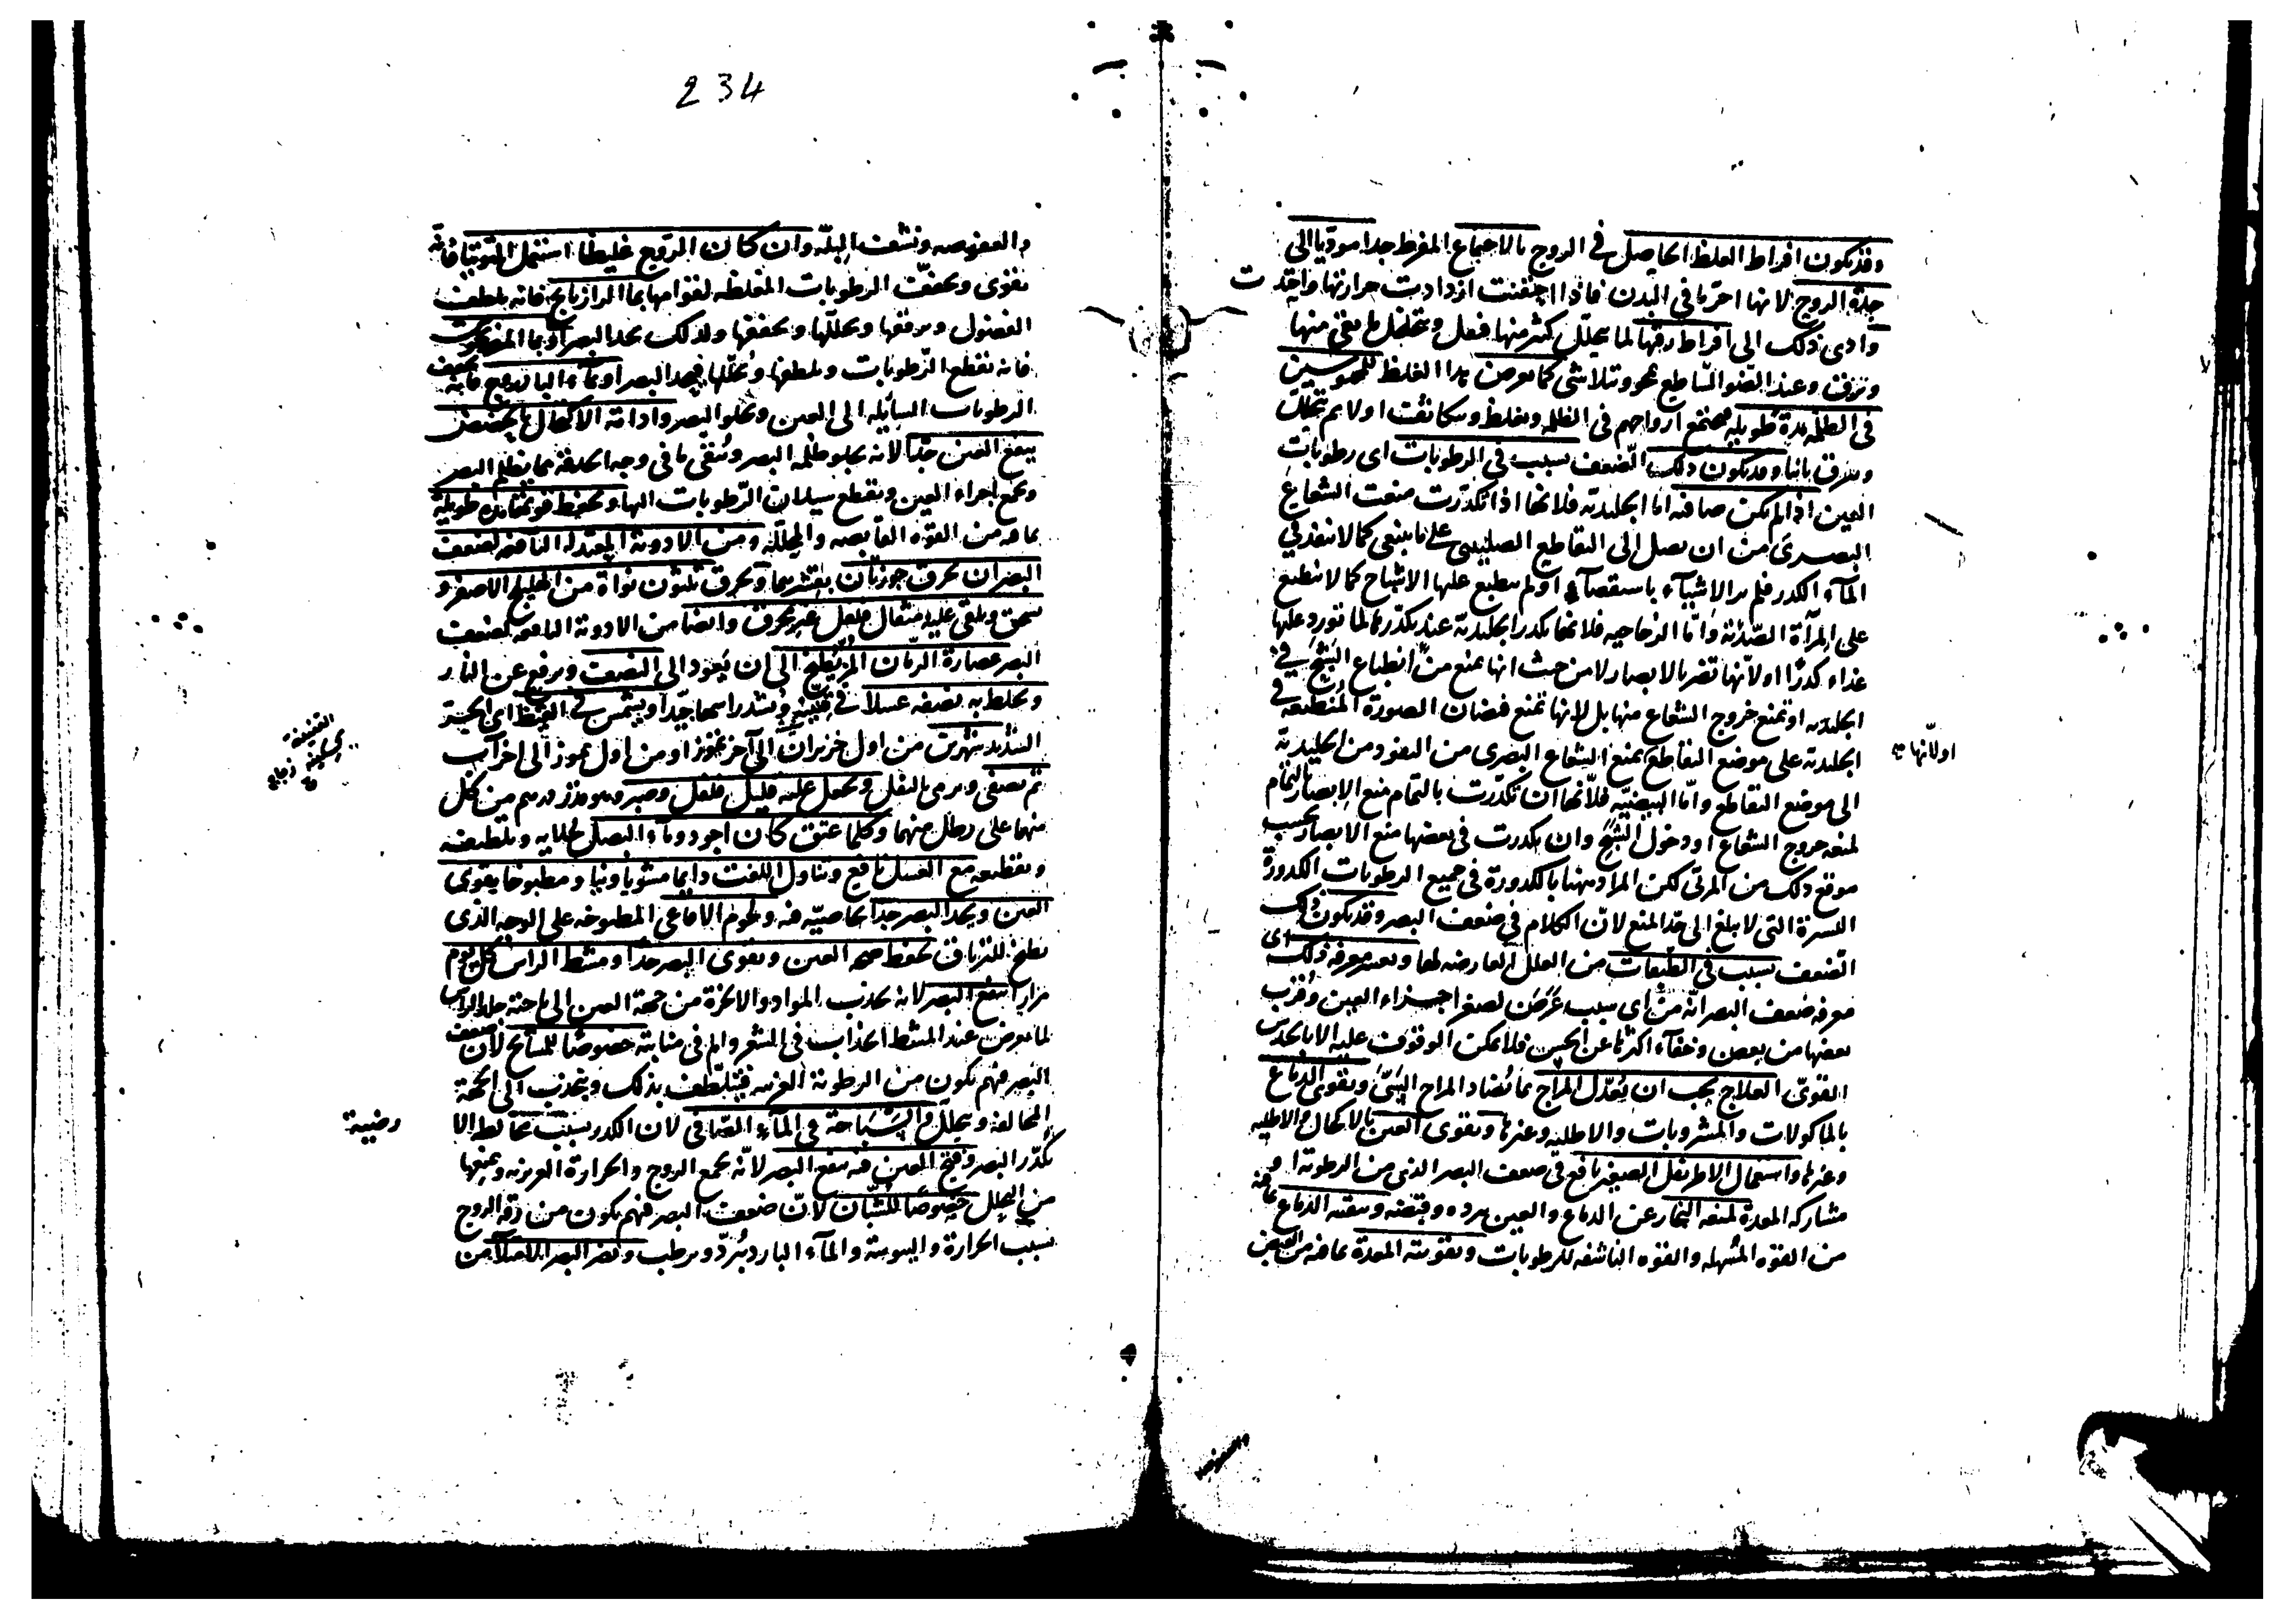 وقد يكون افراط الغلظ الحاصل في الروح بالاجتماع المفرط جدا موديا الى
حدة الروح لانها احر ما في البدن فاذا احتقنت ازدادت حرارتها واحتدت
وادى ذلك الى افراط رقتها لما يتحلل كثير منها فعل ويتخلخل ما بقى منها
ويرق وعند الضو الساطع وتتلاشى كما يعرض هذا الغلظ للمحبوسين
في الظلمة مدة طويلة فيجتمع ارواحهم في الظلمة ويغلظ ويتكاثف اولا ثم يتحلل
ويرق ثانيا وقد يكون ذلك الضعف بسبب في الرطوبات اى رطوبات
العين اذا لم تكن صافية اما الجليدية فلانها اذا تكدرت منعت الشعاع
البصرى من ان يصل الى التقاطع الصليبى على ما ينبغى كما لا ينفذ في
المآء الكدر فلم ير الاشيآء باستقصآء او لم ينطبع عليها الاشباح كما لا ينطبع
على المرآة الصدئة واما الزجاجيه فلانها تكدر الجليدية عند تكدرها لما تورد عليها
غذاء كدرا او لانها تضر بالابصار لا من حيث انها تمنع من انطباع الشبح في
الجليدية او تمنع خروج الشعاع منها بل لانها تمنع فيضان الصورة المنطبعة في
الجليدية على موضع التقاطع بمنع الشعاع البصرى من النفود من الجليدية
اولانها
الى موضع التقاطع واما البيضيه فلانها ان تكدرت بالتمام منع الابصار بالتمام
لمنعه خروج الشعاع او دخول الشبح وان تكدرت في بعضها منع الابصار بحسب
موقع ذلك من المرئى لكن المراد ههنا بالكدورة في جميع الرطوبات الكدورة
اليسيرة التى لا يبلغ الى حد المنع لان الكلام في ضعف البصر وقد يكون ذلك
الضعف بسبب في الطبقات من العلل العارضه لها ويعسر معرفة ذلك اى
معرفه ضعف البصر انه من اى سبب عرض لصغر اجزاء العين وقرب
بعضها من بعض وخفآء اكثرها عن الحس فلا يمكن الوقوف عليه الا بالحدس
القوى العلاج يجب ان يعدل المزاج بما يضاد المزاج السيئ ويقوى الدماغ
بالماكولات والمشروبات والاطليه وغيرها ويقوى العين بالاكحال والاطليه
وغيرها واستعمال الاطريفل الصغير نافع في ضعف البصر الذى من الرطوبة او
مشاركة المعدة لمنعه البخار عن الدماغ والعين ببرده وقبضه وينقيه الدماغ بما فيه
من القوه المسهله والقوه الناشفه للرطوبات وتقويته المعدة بما فيه من القبض
والعفوصه
234
والعفوصه ونشف البله وان كان الروح غليظا استعمل التوتيا فانه
يقوى ويجفف الرطوبات المغلظه لقوامها بما الرازيانج فانه يلطف
الفضول ويرققها ويحللها ويجففها ولذلك يحد البصر او بما المرزنجوش
فانه يقطع الرطوبات ويلطفها ويحللها فيحد البصر او بمآء البادروج فانه يجفف
الرطوبات السايله الى العين ويجلو البصر وادامة الاكتحال بالحضض
ينفع العين جدا لانه يجلو ظلمه البصر وينقى ما في وجه الحدقة مما يظلم البصر
ويجمع اجزاء العين ويقطع سيلان الرطوبات اليها ويحفظ قوتها مدة طويلة
بما فيه من القوه القابضه والمحلله ومن الادوية المعتدله النافعه لضعف
البصر ان يحرق جوزتان بقشريهما ويحرق ثلثون نواة من اهليلج الاصفر و
يسحق ويلقى عليه مثقال فلفل غير محرق وايضا من الادوية النافعه لضعف
البصر عصارة الرمان المز يطبخ الى ان يعود الى النصف ويرفع عن النار
ويخلط به نصفه عسلا في قنينه ويشد راسها جيدا ويشمس في القيظ اى الحر
القنينة
زجاج
الشديد شهرين من اول حزيران الى آخر تموز او من اول تموز الى اخر آب
ثم يصفى ويرمى بالثفل ويجعل عليه قليل فلفل وصبر وهو درهم من كل
منهما على رطل منهما وكلما عتق كان اجود ومآء البصل لجلايه وتلطيفه
وتقطيعه مع العسل نافع وتناول اللفت دايما مشويا ونيا ومطبوخا يقوى
العين ويحد البصر جدا بخاصيه فيه ولحوم الافاعى المطبوخه على الوجه الذى
يطبخ للترياق يحفظ صحة العين ويقوى البصر جدا ومشط الراس كل يوم
مرارا ينفع البصر لانه يجذب المواد والابخرة من جهة العين الى ناحية جلد الراس
لما يعرض عند المشط انجذاب في الشعر والم في منابته خصوصا للمشايخ لان ضعف
البصر فيهم يكون من الرطوبة الغريبه فيتلطف بذلك وينجذب الى الجهة
المخالفه ويتحلل والسباحة في المآء الصافي لان الكدر بسبب مخالط الا
رضية
يكدر البصر وفتح العين فيه ينفع البصر لانه يجمع الروح والحرارة الغريزيه ويمنعها
من التحلل خصوصا للشبان لان ضعف البصر فيهم يكون من رقة الروح
بسبب الحرارة واليبوسة والمآء البارد يبرد ويرطب ويضر البصر الامتلآ من